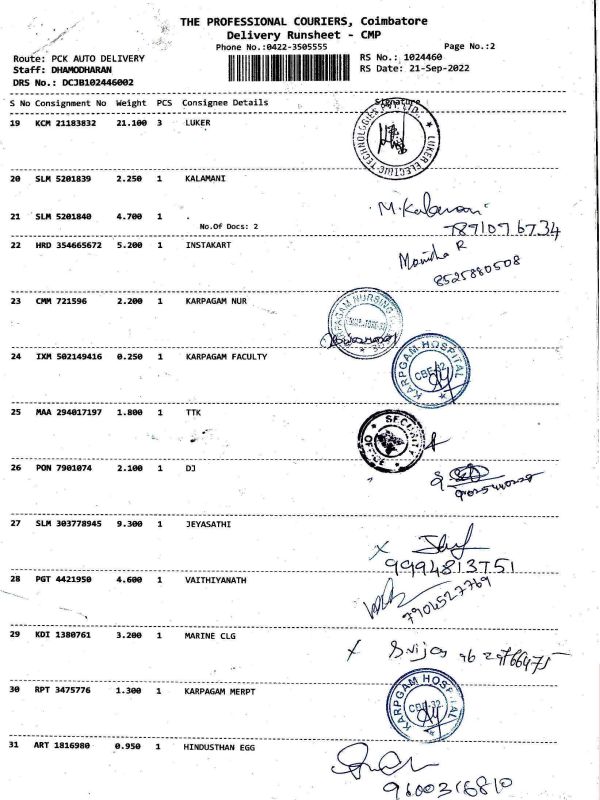 THE PROFESSIONAL COURIERS, Coimbatore
Delivery Runsheet - CMP
Phone No.:0422-3505555 Page No.:2
Route: PCK AUTO DELIVERY RS No.: 1024460
Staff: DHAMODHARAN RS Date: 21-Sep-2022
DRS No.: DCJB102446002
S No Consignment No Weight PCS Consignee Details Signature
19 KCM 21183832 21.100 3 LUKER
LUKER ELECTRIC TECHNOLOGIES PVT. LTD.
20 SLM 5201839 2.250 1 KALAMANI
M.Kalamani
21 SLM 5201840 4.700 1 .
No.Of Docs: 2
7891096734
22 HRD 354665672 5.200 1 INSTAKART
Manisha R
8525880508
23 CMM 721596 2.200 1 KARPAGAM NUR
KARPAGAM NURSING
24 IXM 502149416 0.250 1 KARPAGAM FACULTY
KARPGAM HOSPITAL
CBE-32
25 MAA 294017197 1.800 1 TTK
SECURITY
26 PON 7901074 2.100 1 DJ
27 SLM 303778945 9.300 1 JEYASATHI
X
9994813751
28 PGT 4421950 4.600 1 VAITHIYANATH
7904527769
29 KDI 1380761 3.200 1 MARINE CLG
X Srijas 9629766475
30 RPT 3475776 1.300 1 KARPAGAM MERPT
KARPGAM HOSPITAL
CBE-32
31 ART 1816980 0.950 1 HINDUSTHAN EGG
9600316810